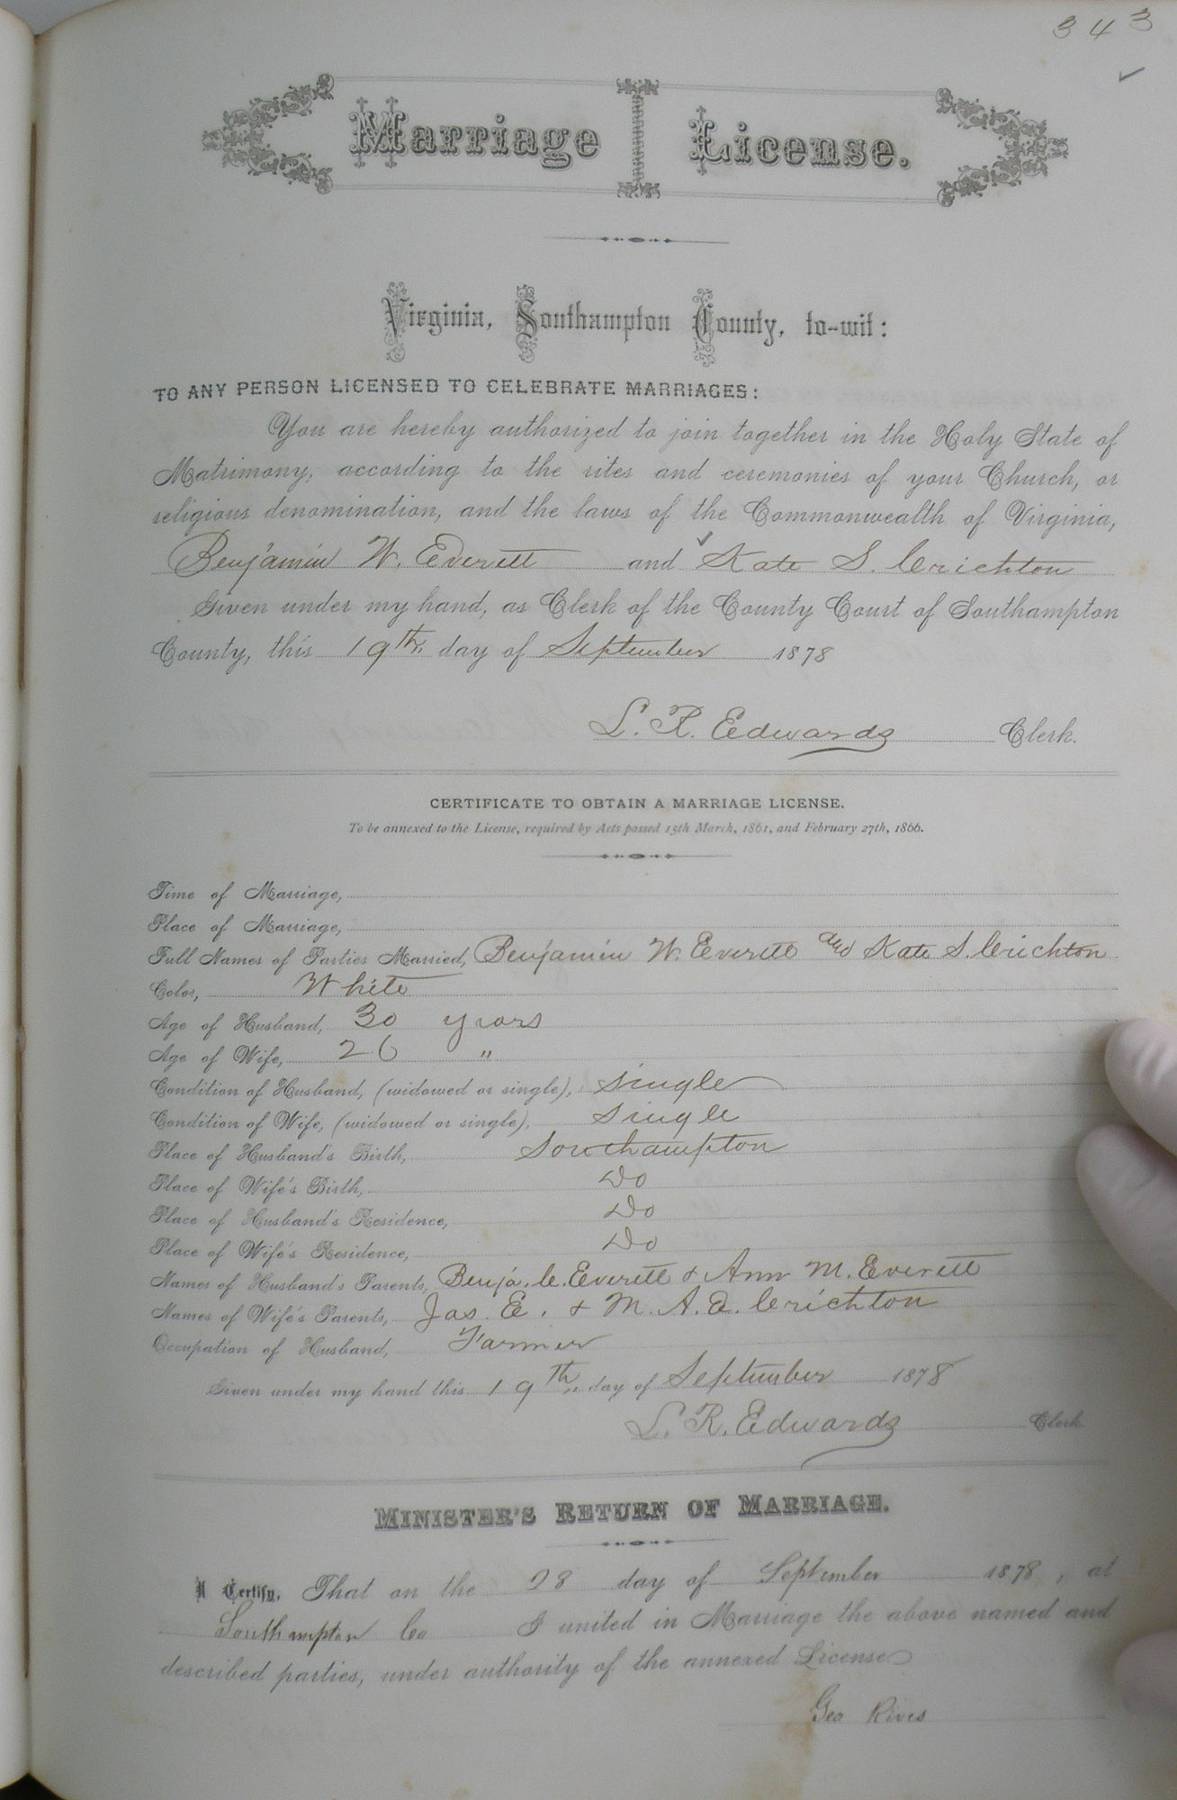 343
Marriage License.
Virginia, Southampton County, to-wit:
TO ANY PERSON LICENSED TO CELEBRATE MARRIAGES:
You are hereby authorized to join together in the Holy State of
Matrimony, according to the rites and ceremonies of your Church, or
religious denomination, and the laws of the Commonwealth of Virginia,
Benjamin W. Everett and Kate S. Crichton
Given under my hand, as Clerk of the County Court of Southampton
County, this 19th day of September 1878
L. R. Edwards Clerk.
CERTIFICATE TO OBTAIN A MARRIAGE LICENSE.
To be annexed to the License, required by Acts passed 15th March, 1861, and February 27th, 1866.
Time of Marriage,
Place of Marriage,
Full Names of Parties Married, Benjamin W. Everett and Kate S. Crichton
Color, White
Age of Husband, 30 years
Age of Wife, 26 "
Condition of Husband, (widowed or single), Single
Condition of Wife, (widowed or single), Single
Place of Husband's Birth, Southampton
Place of Wife's Birth, Do
Place of Husband's Residence, Do
Place of Wife's Residence, Do
Names of Husband's Parents, Benja. C. Everett & Ann M. Everett
Names of Wife's Parents, Jas. E. & M. A. E. Crichton
Occupation of Husband, Farmer
Given under my hand this 19th day of September 1878
L. R. Edwards Clerk
MINISTER'S RETURN OF MARRIAGE.
I Certify, That on the 28 day of September 1878, at
Southampton Co I united in Marriage the above named and
described parties, under authority of the annexed License
Geo Rives